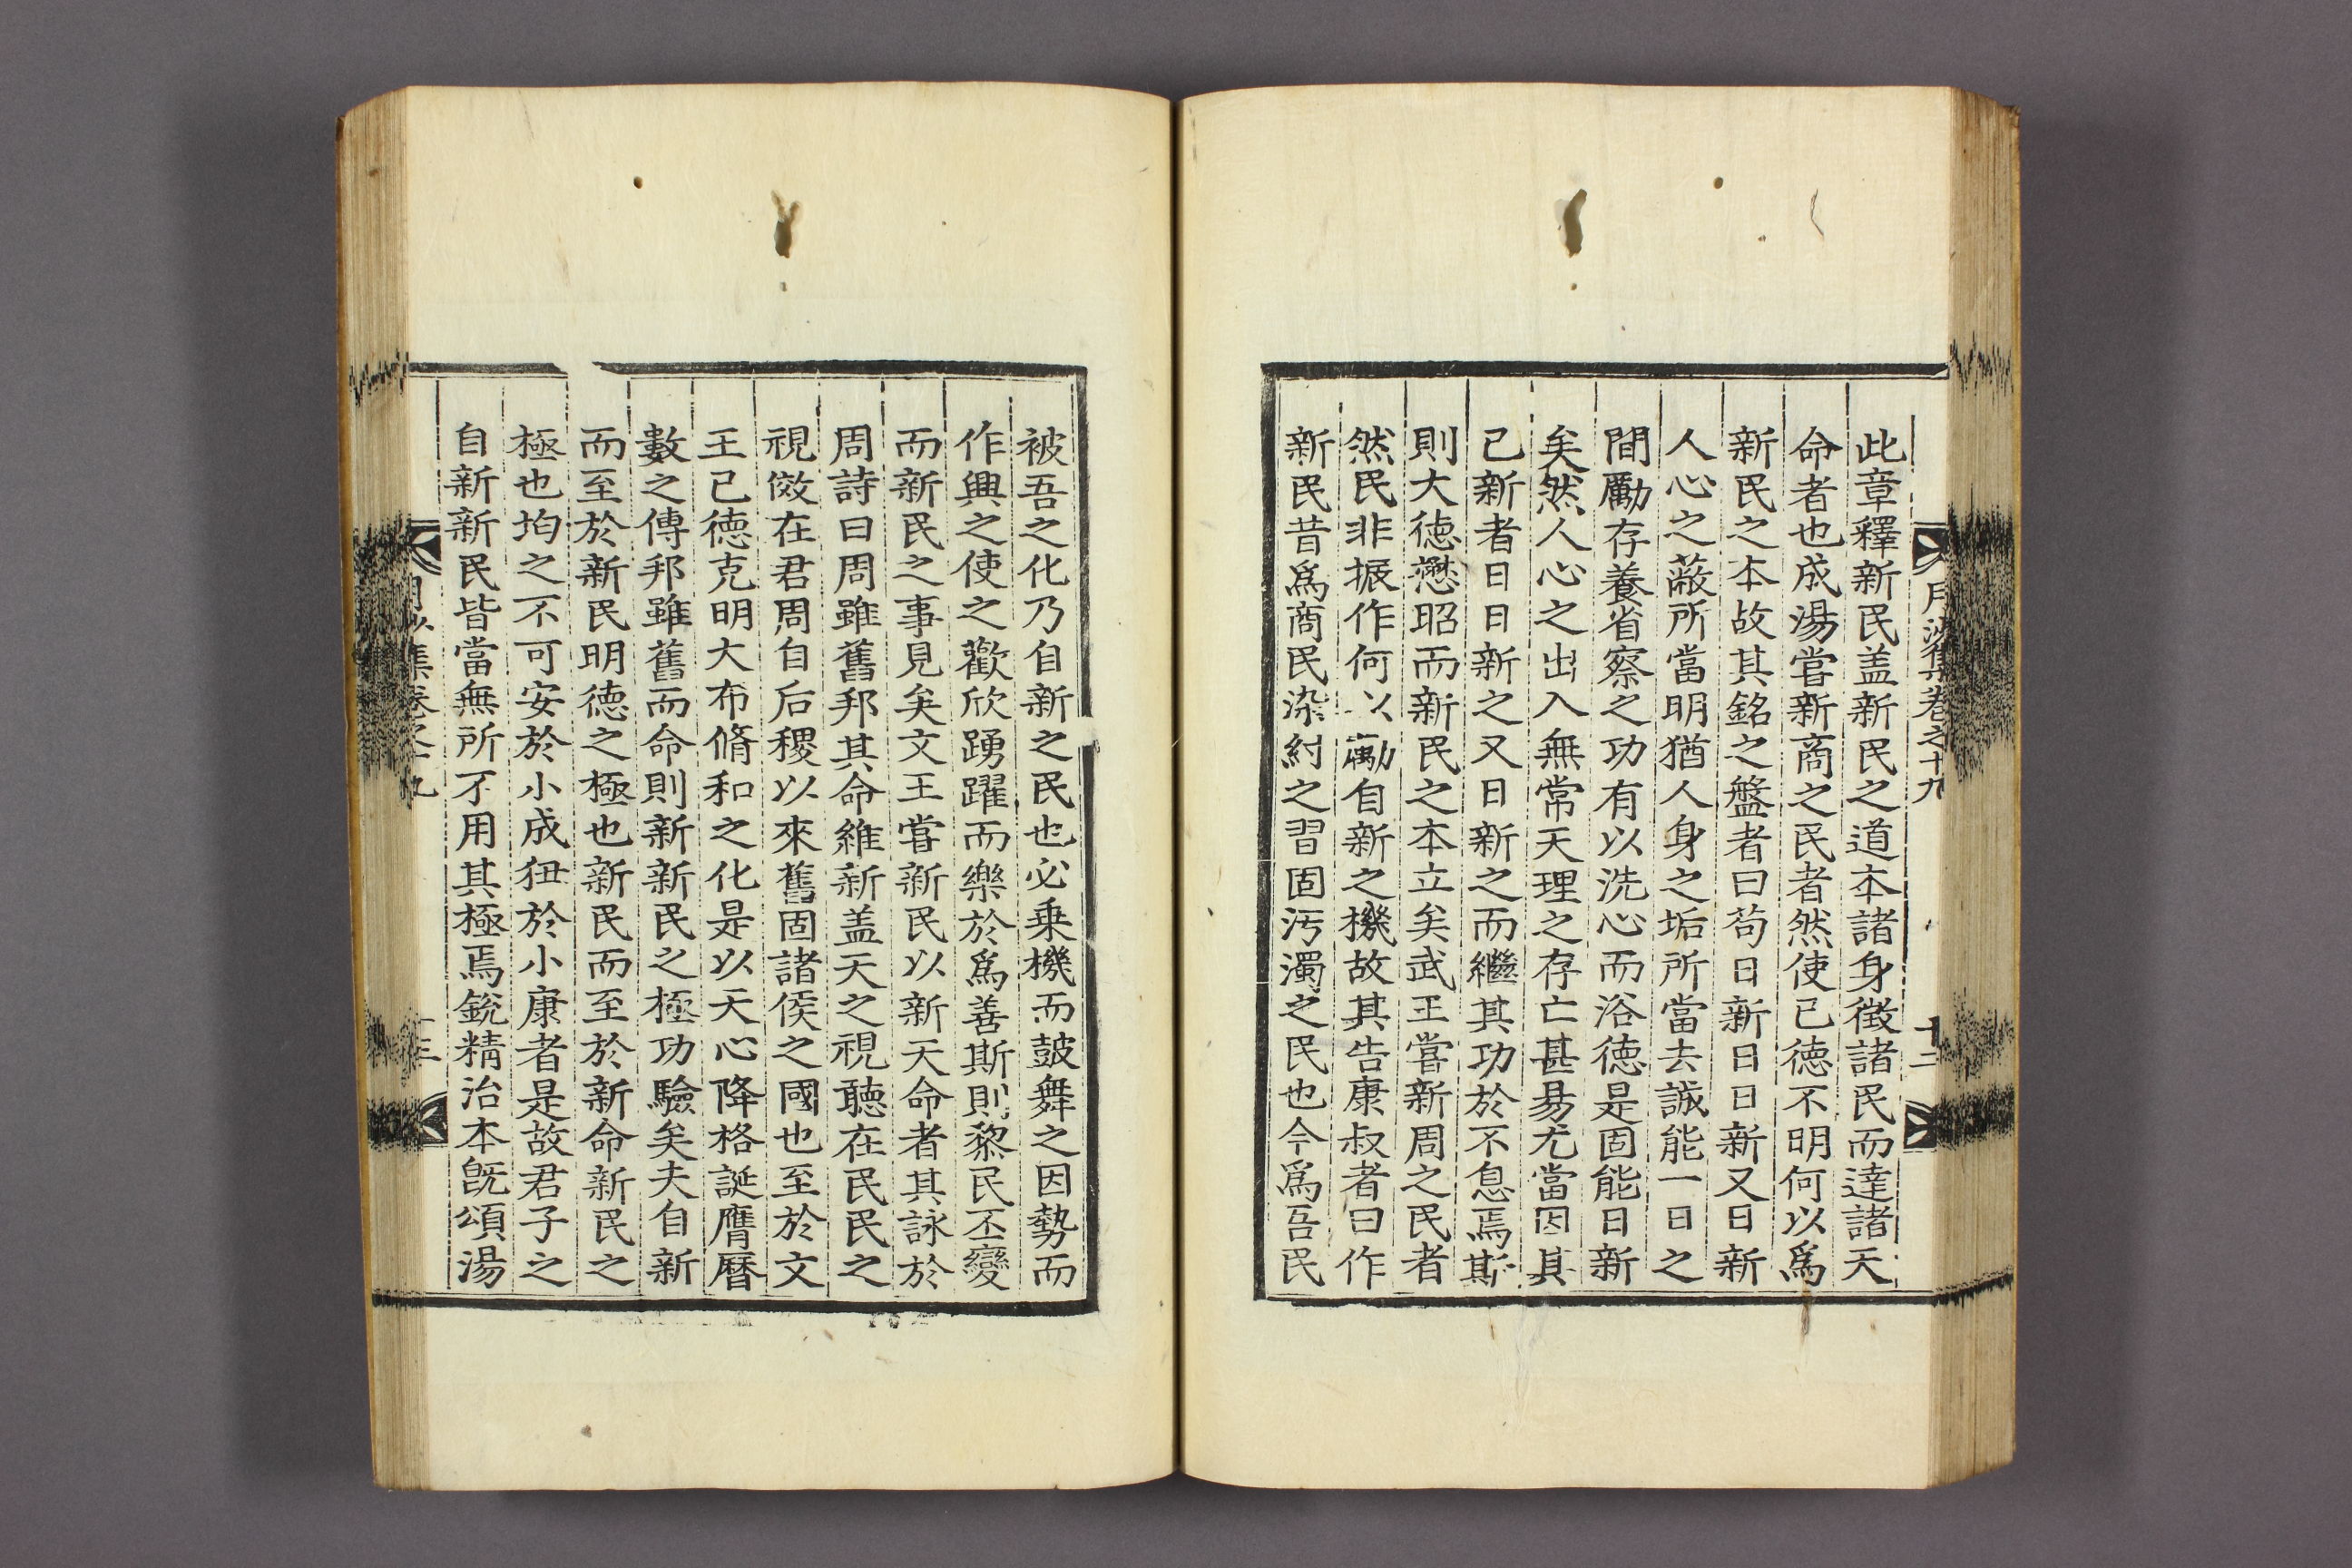 月沙集卷之十九
十二
此章釋新民盖新民之道本諸身徵諸民而達諸天
命者也成湯嘗新商之民者然使已德不明何以爲
新民之本故其銘之盤者曰苟日新日日新又日新
人心之蔽所當明猶人身之垢所當去誠能一日之
間勵存養省察之功有以洗心而浴德是固能日新
矣然人心之出入無常天理之存亡甚易尤當因其
已新者日日新之又日新之而繼其功於不息焉斯
則大德懋昭而新民之本立矣武王嘗新周之民者
然民非振作何以勵自新之機故其告康叔者曰作
新民昔爲商民染紂之習固汚濁之民也今爲吾民
被吾之化乃自新之民也必乗機而皷舞之因勢而
作興之使之歡欣踴躍而樂於爲善斯則黎民丕變
而新民之事見矣文王嘗新民以新天命者其詠於
周詩曰周雖舊邦其命維新盖天之視聽在民民之
視傚在君周自后稷以來舊固諸侯之國也至於文
王已德克明大布脩和之化是以天心降格誕膺曆
數之傳邦雖舊而命則新新民之極功驗矣夫自新
而至於新民明德之極也新民而至於新命新民之
極也均之不可安於小成狃於小康者是故君子之
自新新民皆當無所不用其極焉銳精治本旣頌湯
集卷之九